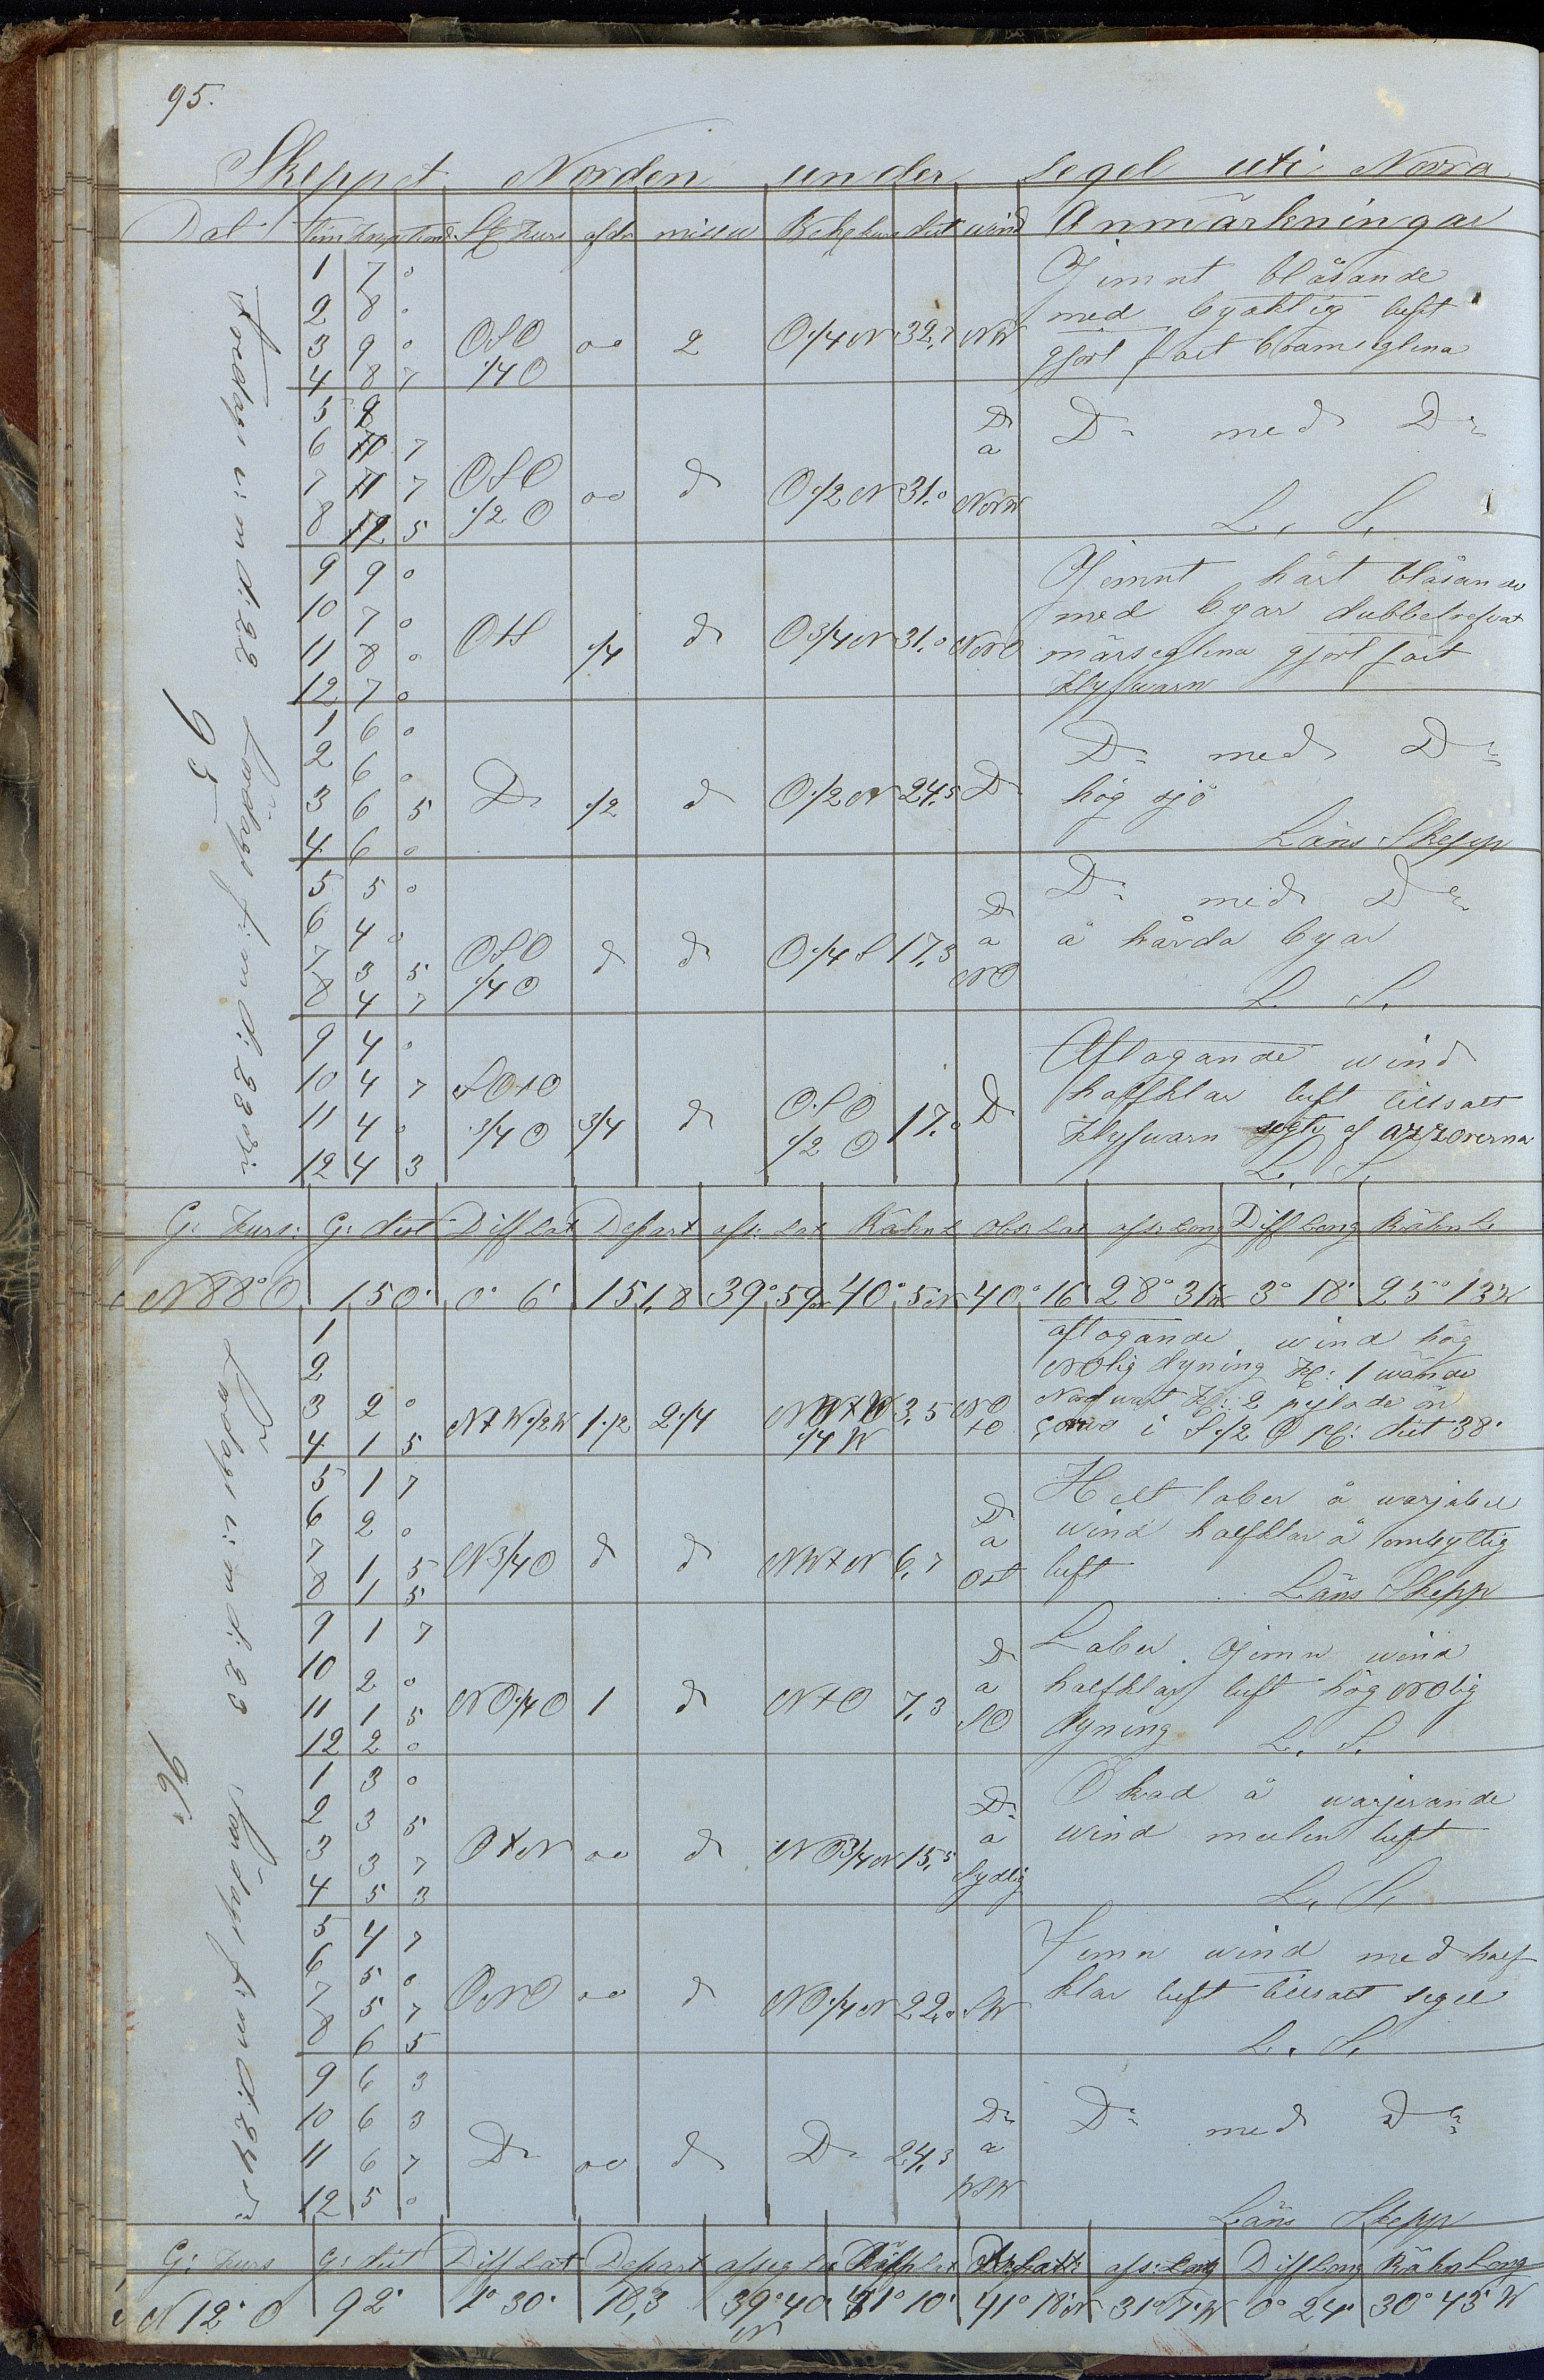 95.
Skeppet Norden under segel uti Norra
Dat Tim Knop St: Kurs afdr missw Behg kurs dist wind Anmärkningar
Fredags e: m d: 22 Lördags f: m d: 23
95
1 7 0 Jemnt blåsande
2 8 0 med byaktig luft
3 9 0 OSO 00 2 O 1/4 N 32,7 NW gjort fast bramseglena
4 8 7 1/4 O
5 9 Do
6 10 7 a Do med Do
7 11 7 OSO 00 d O 1/2 N 31,0
8 12 5 1/2 O NNW L. S.
9 9 0 Jemnt hårt blåsande
10 7 0 med byar dubbelrefvat
11 8 0 OtS 1/4 d O 3/4 N 31,0 NNO märseglena gjort fast
12 7 0 Klyfwarn
1 6 0 Do med Do
2 6 0
3 6 5 Do 1/2 d O 1/2 N 24,5 Do hög sjö
4 6 0 Läns Skepp
5 5 0 Do Do med Do
6 4 0 a å hårda byar
7 3 5 OSO d d O 1/4 S 17,3 NO
8 4 7 1/4 O L. S.
9 4 0 Aftagande wind
10 4 7 SOtO halfklar luft tillsatt
11 4 0 3/4 O 3/4 d OSO 1/2 O 17,0 Do Klyfwarn segte af azzorerna
12 4 3 L. S.
G: Kurs: G: dist Diff Lat Depart afs: Lat Räkn L Obs: Lat afs: Long Diff Long Räkn L:
N 88° O 150' 0° 6' 151,8 39° 59 N 40° 5 N 40° 16' 28° 31 W 3° 18' 25° 13 W
Lördags e: m d: 23 Söndags f: m d: 24
96
1 aftagande wind hög
2 NOlig dyning Kl: 1 wände
3 2 0 NtW 1/2 W 1 1/2 2 1/4 3,5 NO Nordwart Kl: 2 pejlade ön
4 1 5 1/4 W tO Corvo i S 1/2 O dist 38'
5 1 7 Helt laber å warjabel
6 2 0 Do a wind halfklar å ombytlig
7 1 5 N 3/4 O d d NWtN 6,7 Ost luft
8 1 5 Läns Skepp
9 1 7 Laber Jemn wind
10 2 0 Do a halfklar luft hög NOlig
11 1 5 NO 1/4 O 1 d NtO 7,3 SO dyning
12 2 0 L. S.
1 3 0 Ökad å warjerande
2 3 5 Do a wind mulen luft
3 3 7 OtN 00 d NO 3/4 N 15,5 Sydlig
4 5 3 L. S.
5 4 7 Jemn wind med half
6 5 0 klar luft tillsatt segel
7 5 7 ONO 00 d NO 1/4 N 22,0 SW
8 6 5 L. S.
9 6 3
10 6 3 Do Do med Do
11 6 7 Do 00 d Do 24,3 a
12 5 0 WSW Läns Skepp
G: Kurs G: dist Diff Lat Depart afseg La Räkn Lat afs: Long Diff Long Räkn Long
N 12° O 92' 1° 30' 18,3 39° 40' N 41° 10' 41° 18' N 31° 7' W 0° 24' 30° 43' W